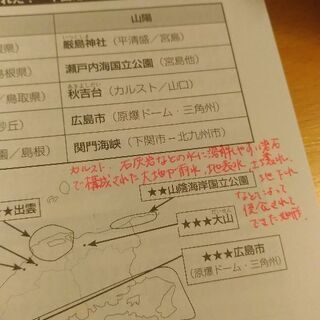 山陽
県）
厳島神社（平清盛／宮島）
島根県）
瀬戸内海国立公園（宮島他）
／鳥取県）
秋吉台（カルスト／山口）
砂丘
広島市（原爆ドーム・三角州）
／島根）
関門海峡（下関市－北九州市）
カルスト．石灰岩などの水に溶解しやすい岩石
で構成された大地が雨水、地表水、土壌水、
地下水
などによって
侵食されて
できた地形
★★山陰海岸国立公園
出雲
★★★大山
★★★広島市
（原爆ドーム・三角州）